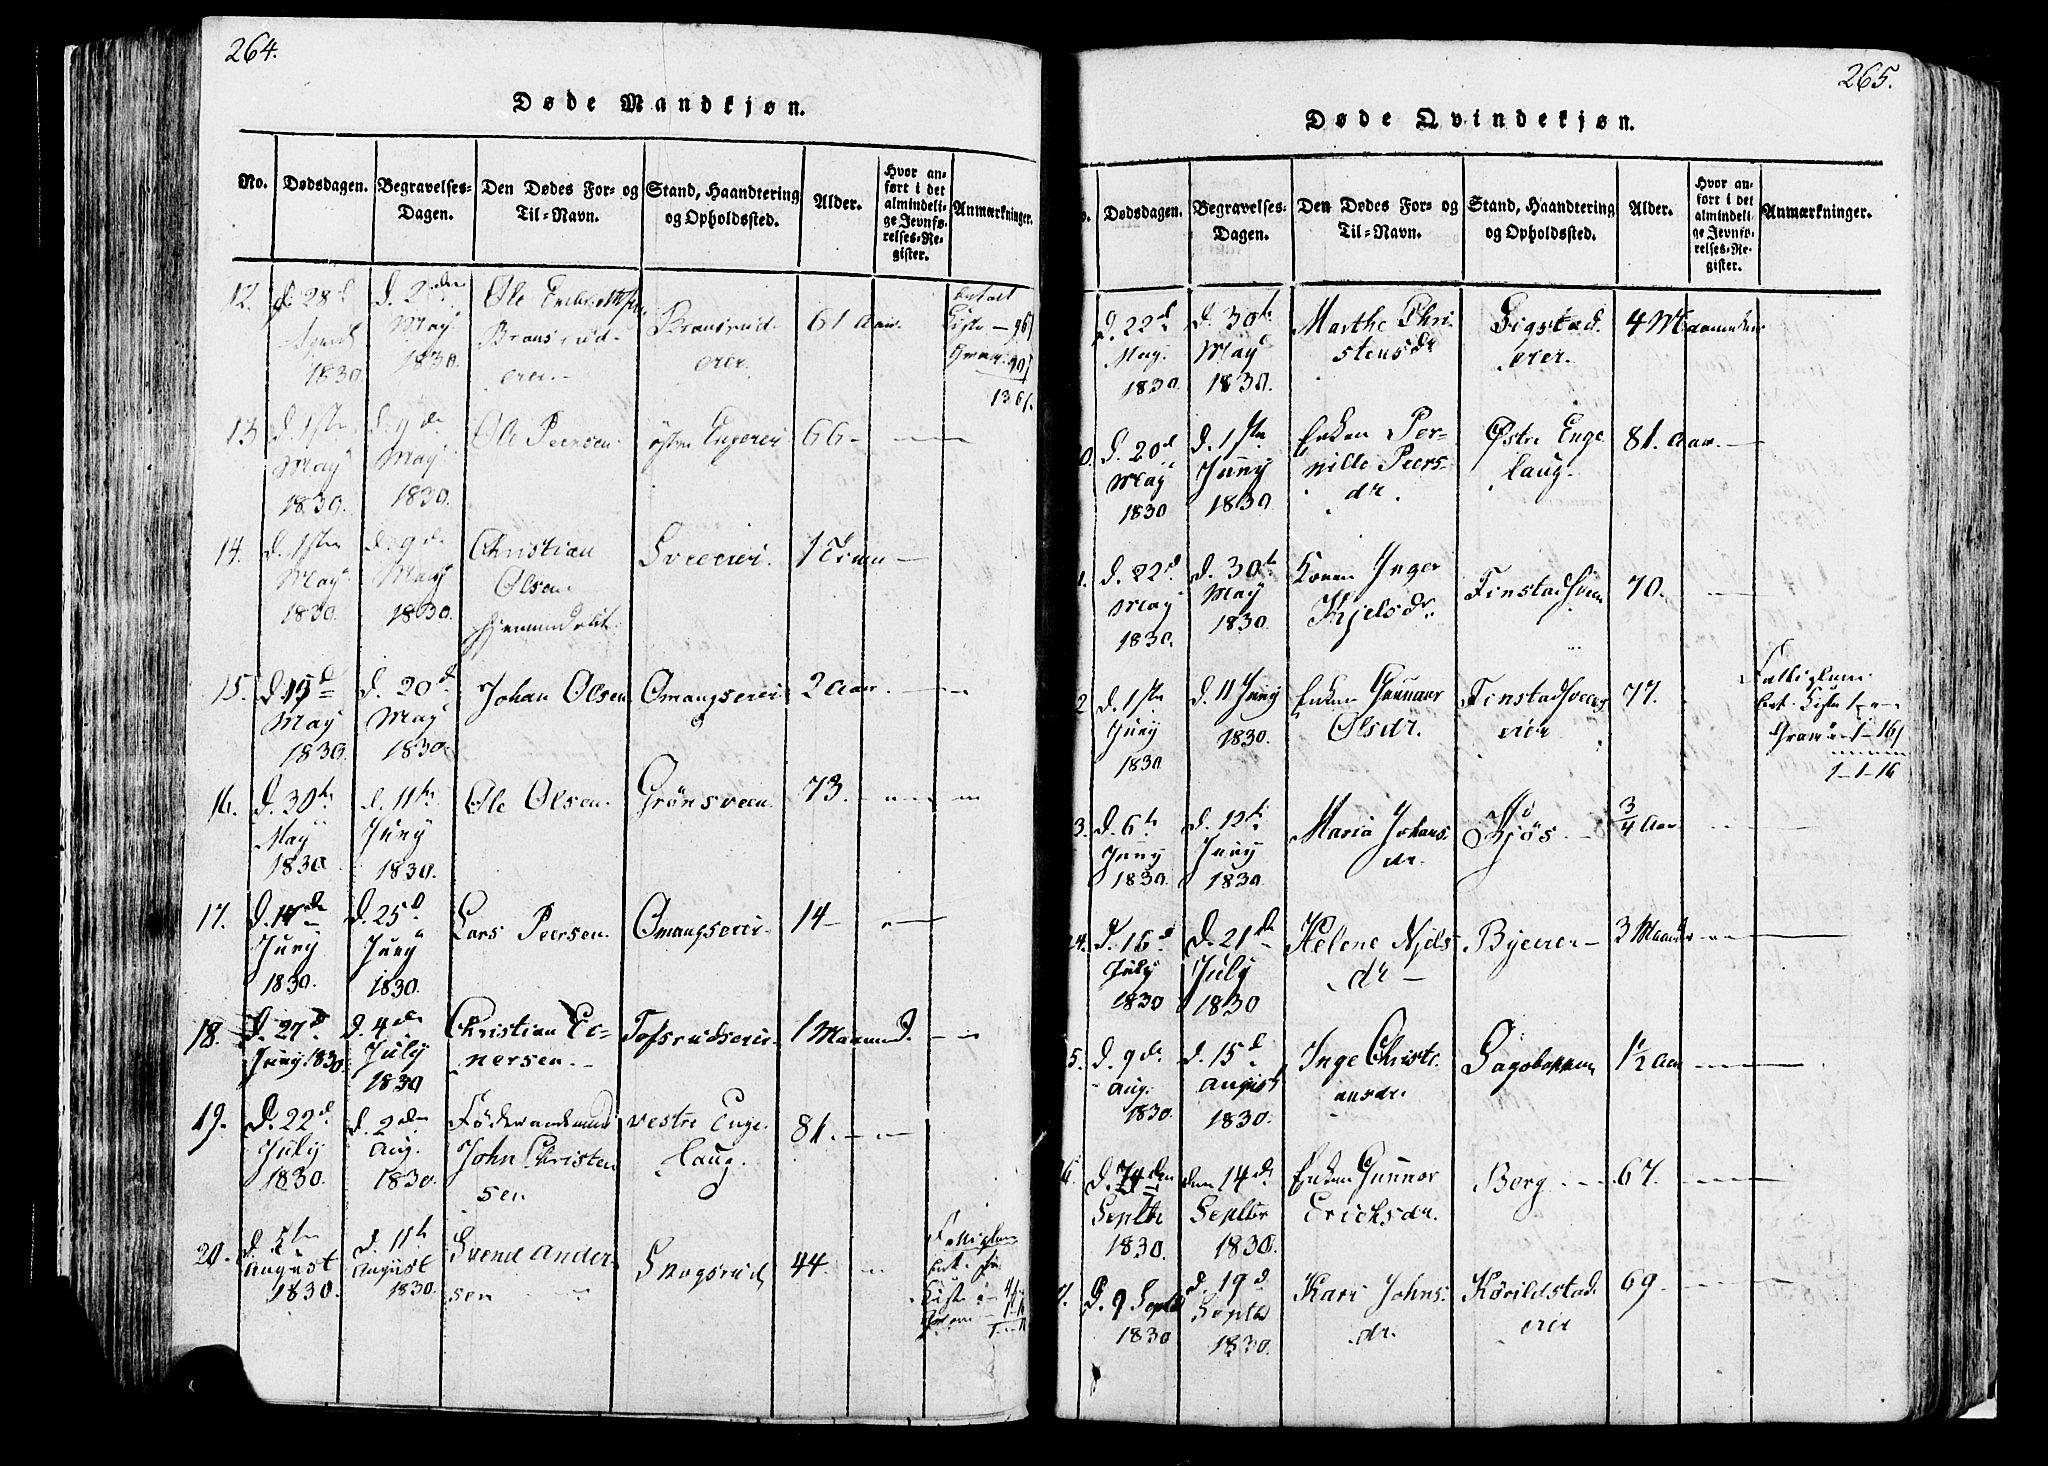 264.
Døde Mandkjøn.
No. Dødsdagen. Begravelses-Dagen. Den Dødes For- og Til-Navn. Stand, Haandtering og Opholdssted. Alder. Hvor anført i det almindelige Jevnførelses-Register. Anmærkninger.
12. d. 28d
1830.
d. 2den
May
1830.
Ole
Bransrud-
eier.
Bransrud-
eier.
61 Aar.
betalt
Kiste — 96
136
13 d. 1ste
May
1830.
d. 9de
May
1830.
Ole Peersen.
østre
66 —
14. d. 1ste
May
1830.
d. 9de
May
1830.
Christian
Olsen
hjemmedøbt.
Sveeeier.
1
15. d. 15d
May
1830.
d. 20d
May
1830.
Johan Olsen
Omangseier
2 Aar.
16. d. 30te
May
1830.
d. 11te
Juny
1830.
Ole Olsen.
Grönsveen.
73.
17. d. 17de
Juny
1830.
d. 25d
Juny
1830.
Lars Peersen.
Omangseier.
14 —
18. d. 27d
Juny 1830.
d. 4de
July
1830
Christian Ei-
nersen.
1 Maaned.
19. d. 22d
July
1830.
d. 2den
Aug.
1830.
Föderaadsmand
John Christen
sen
vestre Enge-
laug.
81.
20. d. 5te
August
1830.
d. 11te
August
1830.
Svend Ander
sen
Skogsrud
44
Kiste
265.
Døde Qvindekjøn.
Dødsdagen. Begravelses-Dagen. Den Dødes For- og Til-Navn. Stand, Haandtering og Opholdssted. Alder. Hvor anført i det almindelige Jevnførelses-Register. Anmærkninger.
d. 22d
May.
1830.
d. 30te
May
1830.
Marthe Chri-
stensdr
Sigstad
eier.
4 Maaneder
0. d. 20d
May
1830
d. 1ste
Juny
1830
Enken Per-
nille Peers-
dr.
Østre Enge
laug.
81. Aar.
1. d. 22d.
May
1830.
d. 30te
May
1830.
Konen Inger
Kjelsdr.
70.
2 d. 1ste
Juny
1830
d. 11 Juny
1830.
Enken Gunnor
Olsdr.
eier
77.
bet. Kiste
1-1-16
3. d. 6te
Juny
1830.
d. 12te
Juny
1830
Maria Johans
dr.
Kjös
3/4 Aar
24. d. 16d
July
1830
d. 21de
July
1830
Helene Njels
dr —
Byeeier —
3 Maaneder
5. d. 9de
Aug.
1830.
d. 15d
August
1830.
Inge Christi-
ansdr.
1 1/2 Aar
6.
Septbr
1830.
den 14de
Septbr
1830.
Enken Gunnor
Erichsdr.
Berg
67.
7. d. 9 Septbr
1830
d. 19d
Septbr
1830.
Kari Johns-
dr.
Körildstad
eier
69.